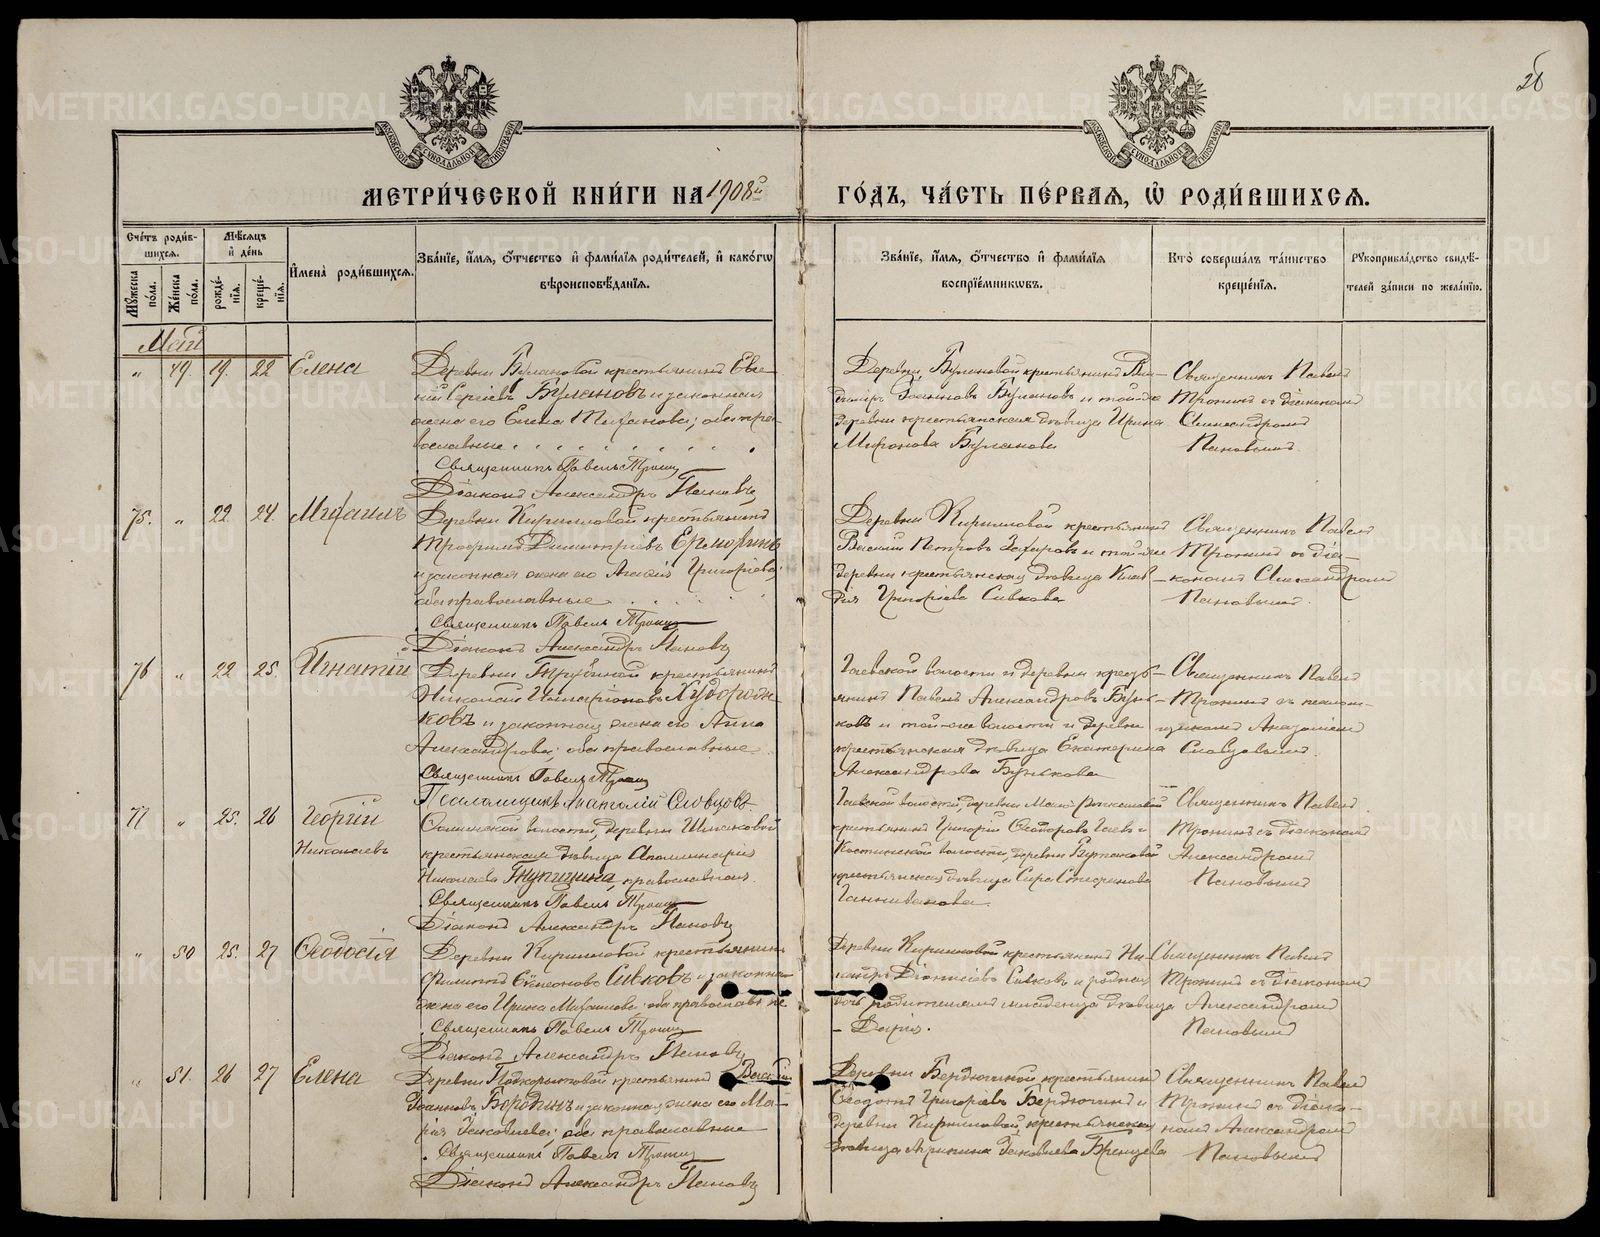 26
МЕТРИ́ЧЕСКОЙ КНИ́ГИ НА 1908й ГО́ДЪ, ЧА́СТЬ ПЕ́РВАЯ, Ѡ РОДИ́ВШИХСЯ.
Сче́тъ роди́в-
шихся.
Му́жеска по́ла.
Же́нска по́ла.
Мѣ́сяцъ и де́нь
рожде́-
нія.
креще́-
нія.
Имена̀ роди́вшихся.
Зва́ніе, и́мя, о́тчество и фами́лія роди́телей, и како́гѡ
вѣроисповѣ́данія.
Зва́ніе, и́мя, о́тчество и фами́лія
воспрїе́мникѡвъ.
Кто̀ соверша́лъ та́инство
креще́нія.
Рꙋкоприкла́дство свидѣ́-
телей за́писи по жела́нію.
Май
" 49. 19. 22 Елена
Деревни Булановой крестьянинъ Евге-
ній Сергіевъ Булановъ и законная
жена его Елена Тиханова; оба пра-
вославные
Священникъ Павелъ Тронинъ
Діаконъ Александръ Пановъ
Деревни Булановой крестьянинъ Вла-
димръ Іоанновъ Булановъ и той-же
деревни крестьянская дѣвица Ирина
Миронова Буланова
Священникъ Павелъ
Тронинъ съ діакономъ
Александромъ
Пановымъ.
75. " 22 24. Михаилъ
Деревни Кирилловой крестьянинъ
Трофимъ Димитріевъ Ерморинъ
и законная жена его Григоріева;
оба православные
Священникъ Павелъ Тронинъ
Діаконъ Александръ Пановъ
Деревни Кирилловой крестьянинъ
Василій Петровъ Захаровъ и той-же
деревни крестьянская дѣвица Клав-
дія Григоріева Сивкова
Священникъ Павелъ
Тронинъ съ діа-
кономъ Александромъ
Пановымъ.
76 " 22 25. Игнатій
Деревни Трубиной крестьянинъ
Николай Илларіоновъ Худорож-
ковъ и законная жена его Анна
Александрова; оба православные
Священникъ Павелъ Тронинъ
Псаломщикъ Анатолій Словцовъ
Гаевской волости и деревни кресть-
янинъ Павелъ Александровъ Бунь-
ковъ и той-же волости и деревни
крестьянская дѣвица Екатерина
Александрова Бунькова
Священникъ Павелъ
Тронинъ съ псалом-
щикомъ Анатоліемъ
Словцовымъ.
77 " 25. 26 Георгій
Николаевъ
волости, деревни
крестьянская дѣвица Аполлинарія
Николаева Тупицина, православная.
Священникъ Павелъ Тронинъ
Діаконъ Александръ Пановъ
Гаевской волости, деревни Мало-
крестьянинъ Григорій Ѳеодоровъ Гаевъ и
Костинской волости, деревни
крестьянская дѣвица Стефанова
Священникъ Павелъ
Тронинъ съ діакономъ
Александромъ
Пановымъ
" 50 25. 27 Ѳеодосія
Деревни Кирилловой крестьянинъ
Филиппъ Симеоновъ Сивковъ и законная
жена его Ирина Михаилова; оба православные
Священникъ Павелъ Тронинъ
Діаконъ Александръ Пановъ
Деревни Кирилловой крестьянинъ Ни-
кандръ Діонисіевъ Сивковъ и родная
дочь родителямъ младенца дѣвица
Дарія.
Священникъ Павелъ
Тронинъ съ діакономъ
Александромъ
Пановымъ
" 51. 26 27 Елена
Деревни Подкорытовой крестьянинъ Василій
Іоанновъ Бородинъ и законная жена его Ма-
рія Іаковлева; оба православные
Священникъ Павелъ Тронинъ
Діаконъ Александръ Пановъ
Деревни Бердюгиной крестьянинъ
Ѳеодотъ Григоріевъ Бердюгинъ и
деревни Кирилловой, крестьянская
дѣвица Іаковлева Брянцева
Священникъ Павелъ
Тронинъ съ діако-
номъ Александромъ
Пановымъ
METRIKI.GASO-URAL.RU